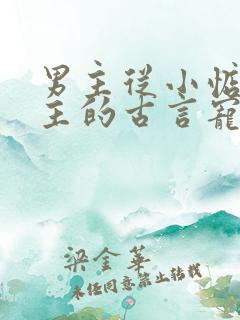 男主从小惦
主的古言宠
梁金华
未经同意禁止转载